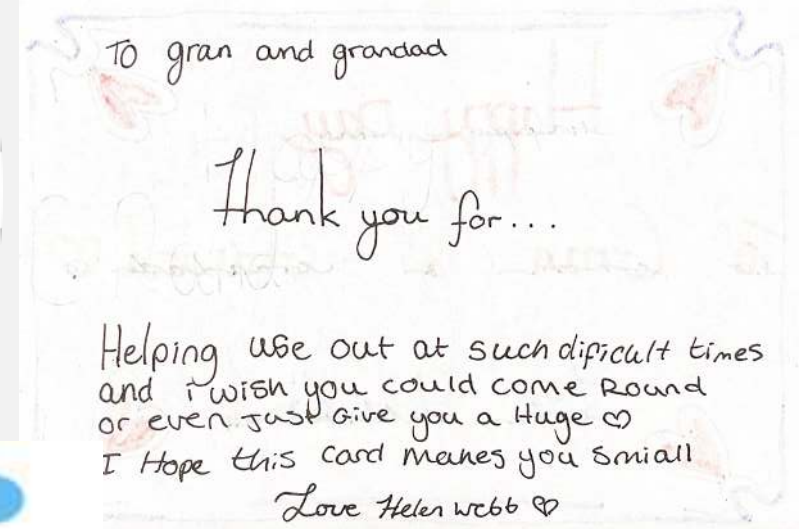 To gran and grandad
Thank you for...
Helping use out at such dificult times
and i wish you could come Round
or even Just Give you a Huge ♡
I Hope this card manes you smiall
Love Helen webb ♡